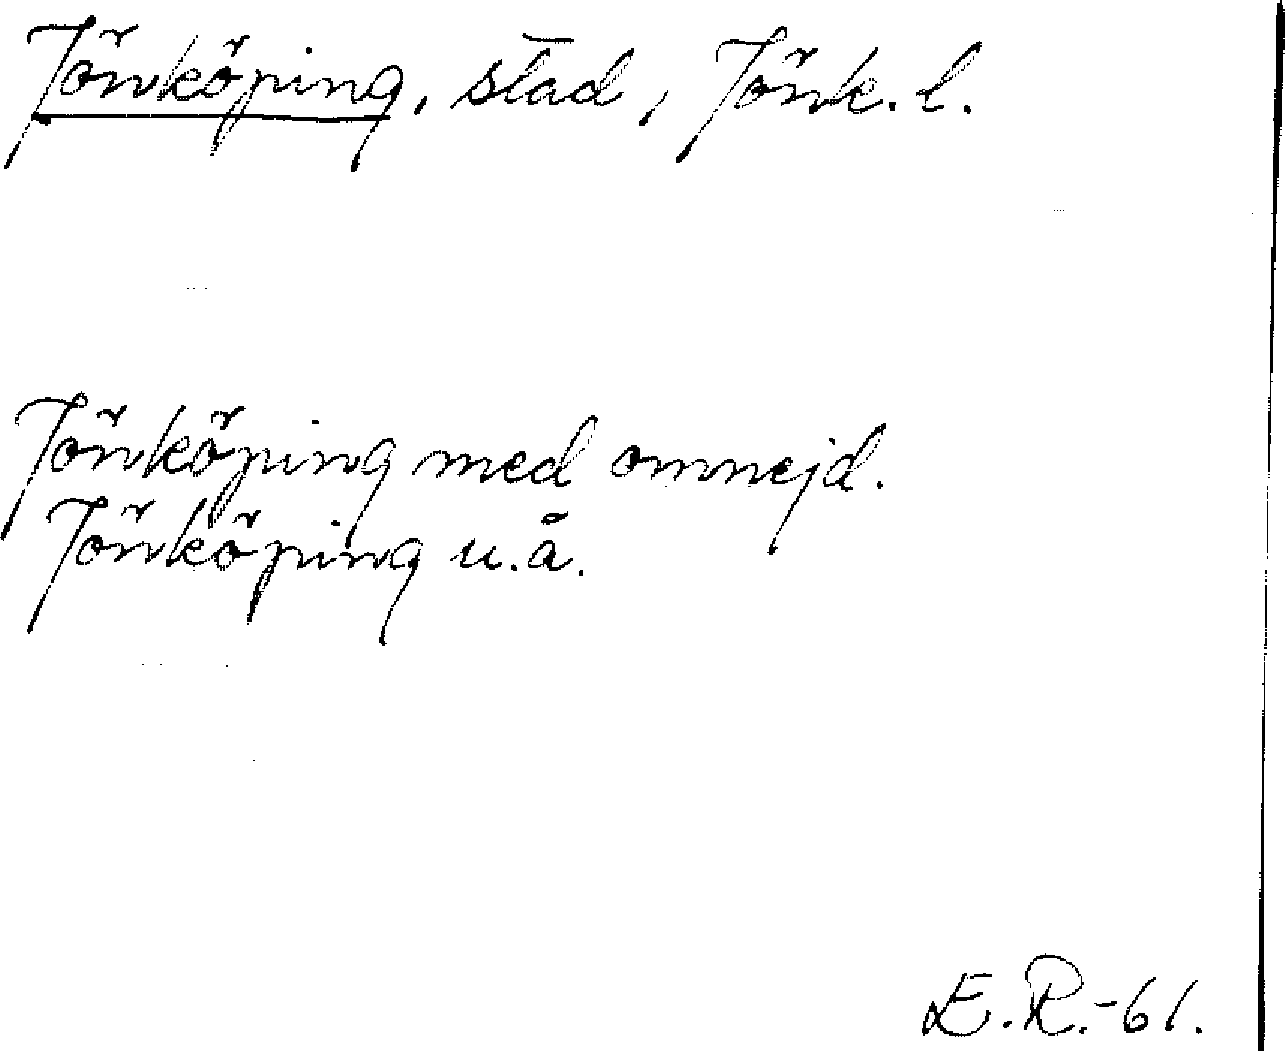 Jönköping, stad, Jönk. l.
Jönköping med omnejd.
Jönköping u.å.
E.R.-61.